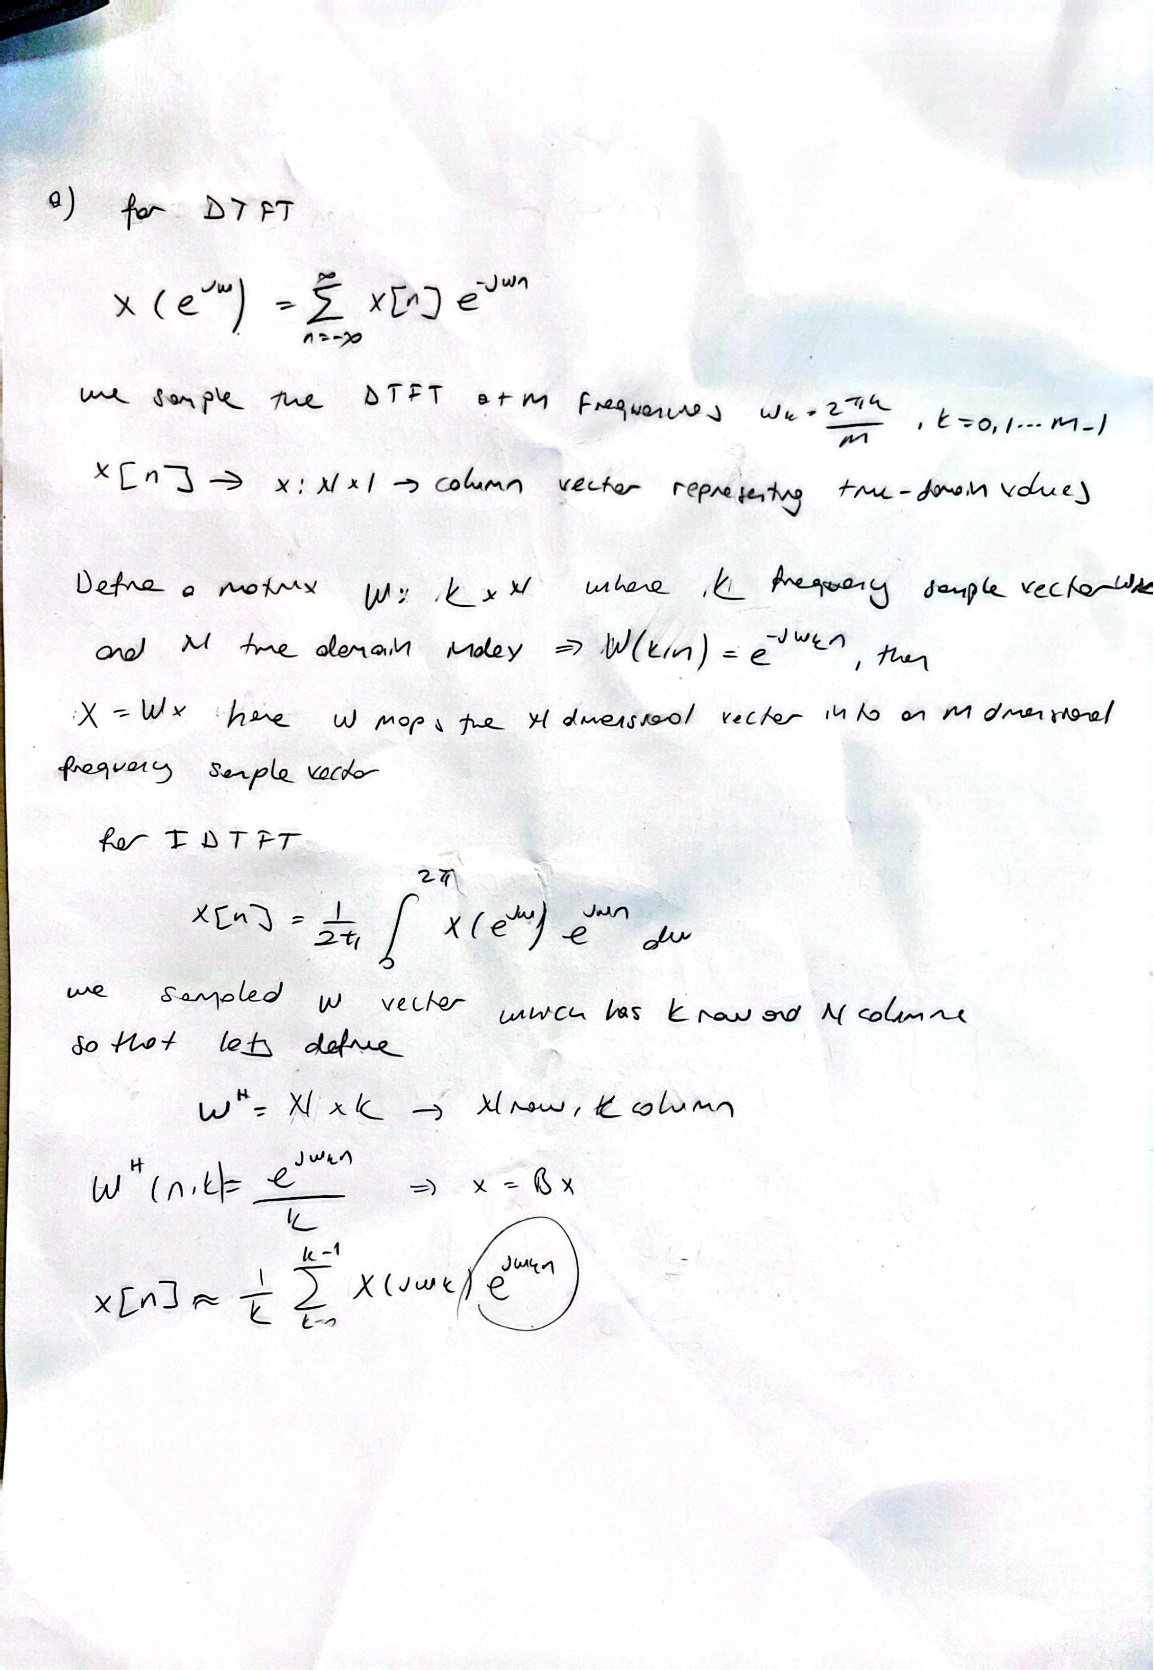 a) for DTFT
X(e^jw) = ∑_{n=-∞}^{∞} x[n] e^-jwn
we sample the DTFT at M frequencies w_k = 2πk/M , k=0,1...M-1
x[n] → x: N×1 → column vector representing time-domain values
Define a matrix W: K×N where K frequency sample vector
and N time domain index ⇒ W(k,n) = e^-jw_kn, then
X = Wx here W maps the N dimensional vector into an M dimensional
frequency sample vector
for IDTFT
x[n] = 1/2π ∫_0^{2π} X(e^jw) e^jwn dw
we sampled W vector which has K row and N column
so that lets define
W^H = N×K → N row, K column
W^H(n,k) = e^jw_kn / K ⇒ x = Bx
x[n] ≈ 1/K ∑_{k=0}^{K-1} X(jw_k) e^jw_kn